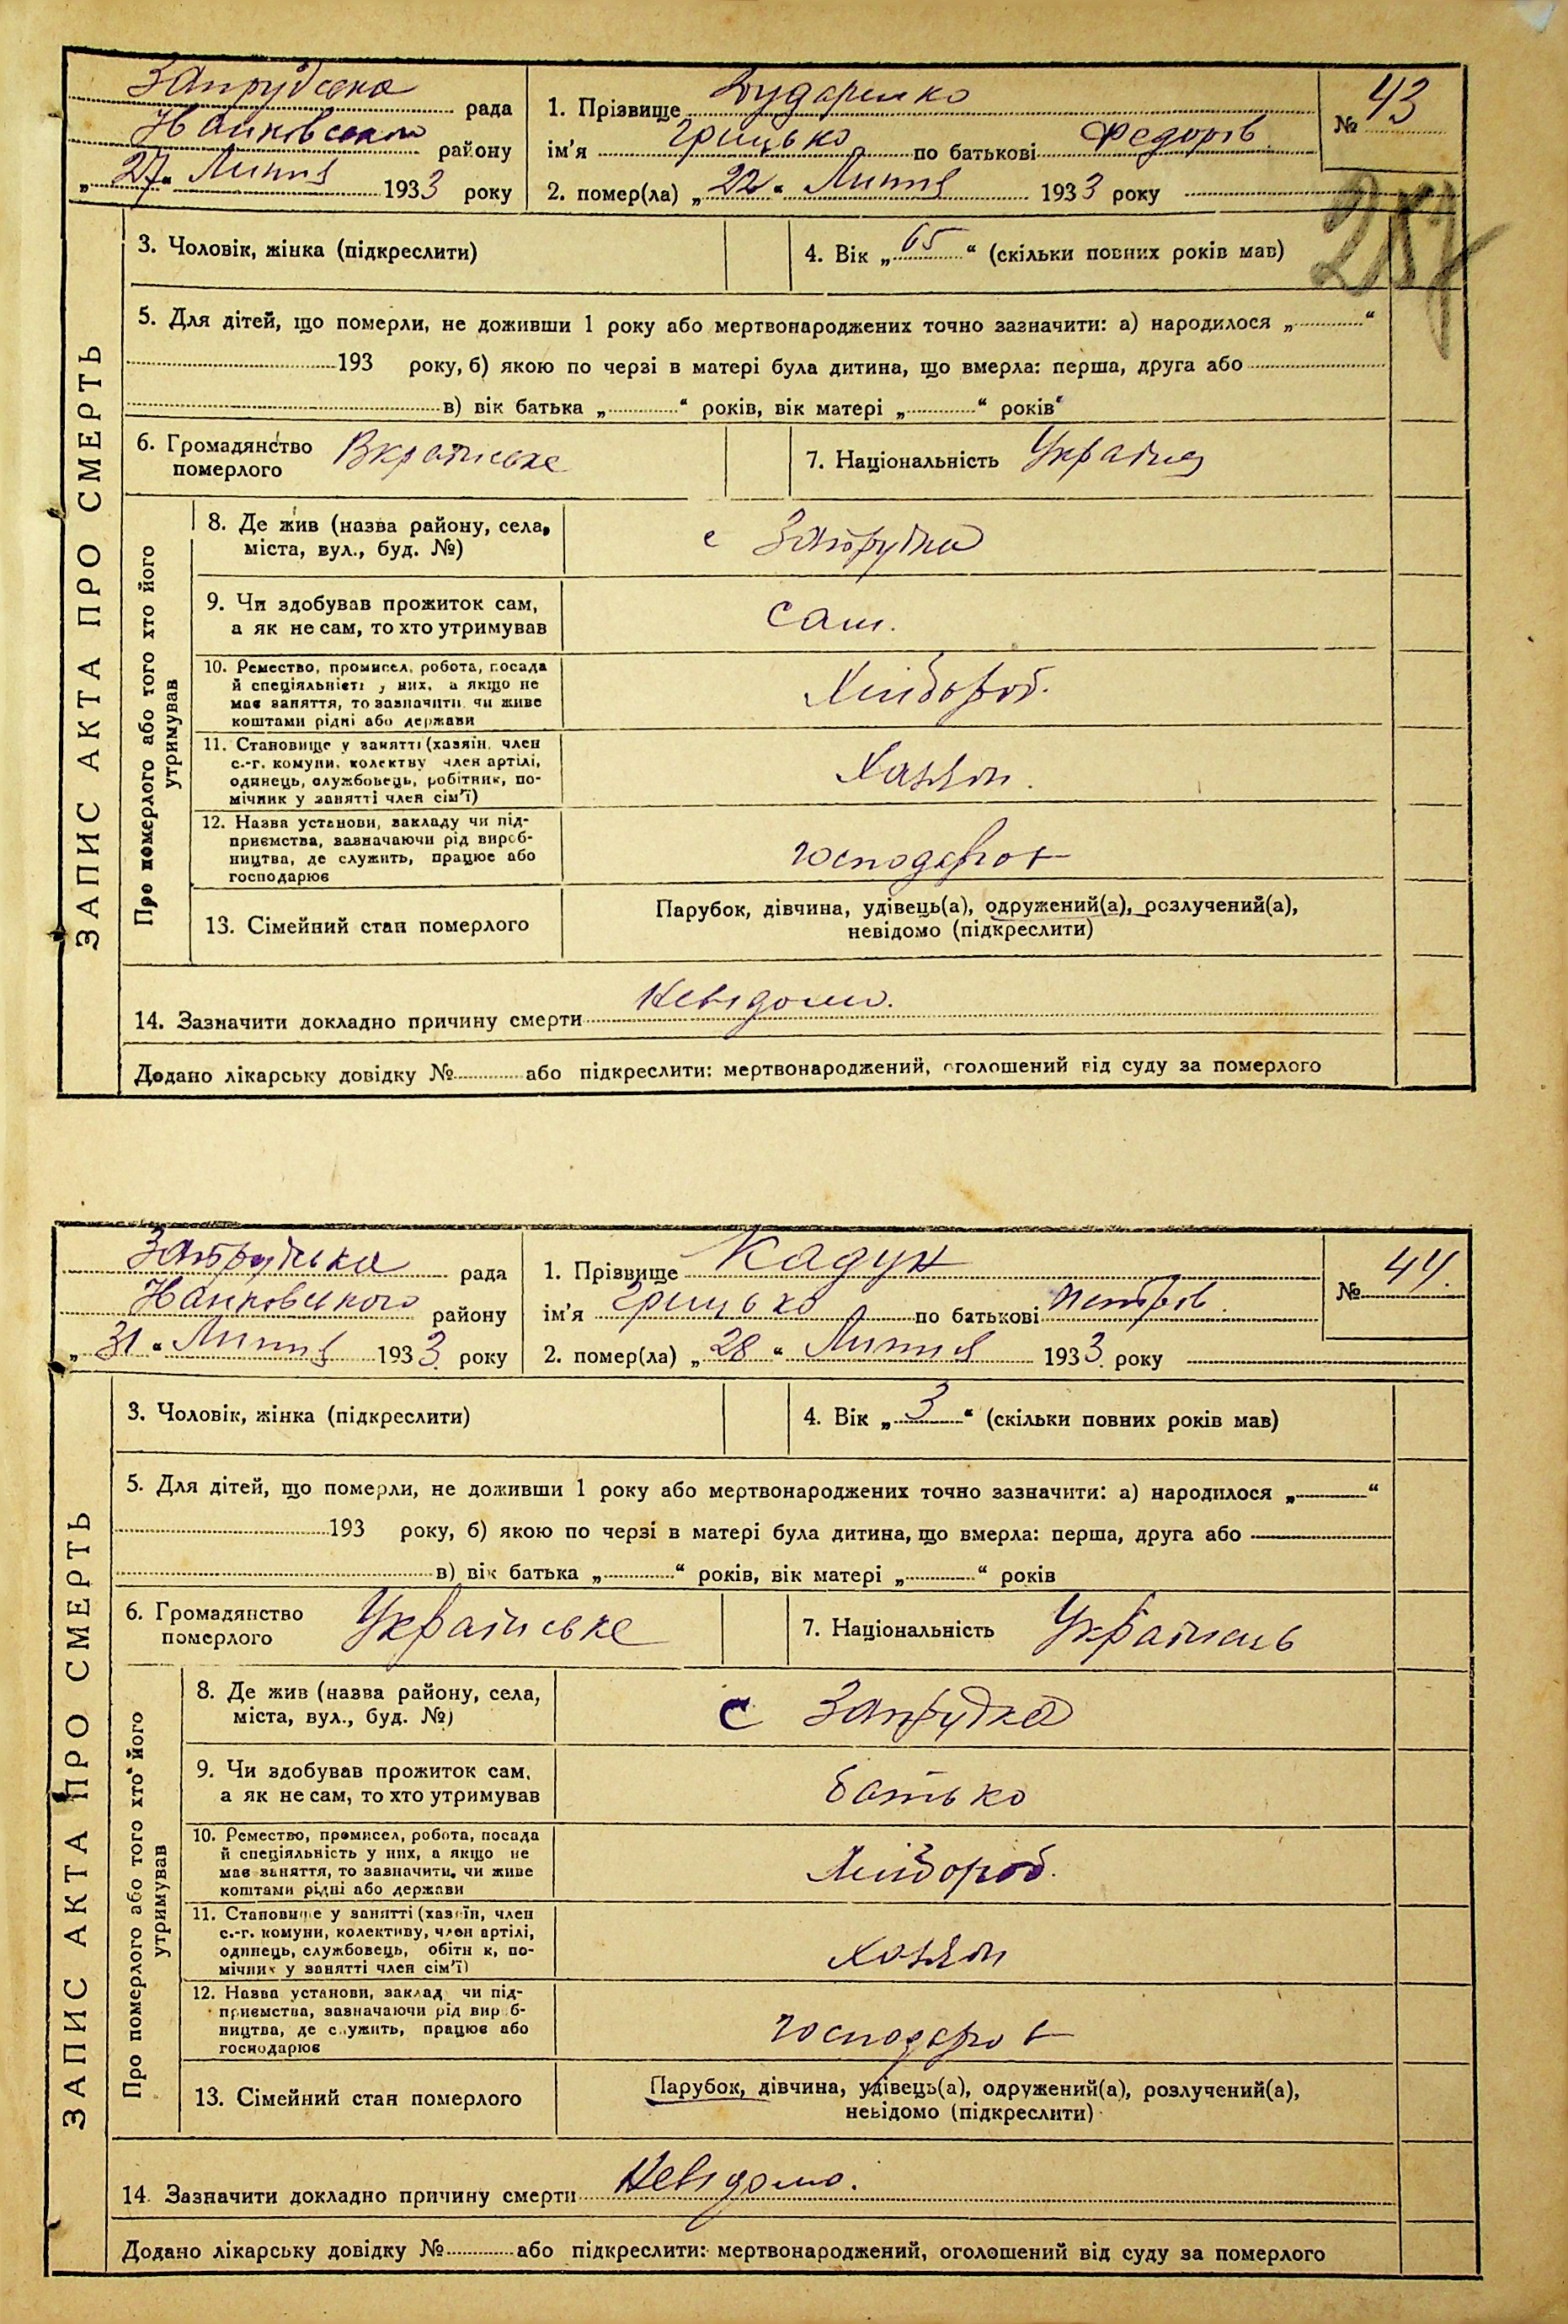 ЗАПИС АКТА ПРО СМЕРТЬ
Запрудська рада
району
„27“ Липня 1933 року
1. Прізвище Дударенко
ім'я Грицько по батькові Федорів
2. помер(ла) „22“ Липня 1933 року
№ 43
257
3. Чоловік, жінка (підкреслити)
4. Вік „65“ (скільки повних років мав)
5. Для дітей, що померли, не доживши 1 року або мертвонароджених точно зазначити: а) народилося „ “
193 року, б) якою по черзі в матері була дитина, що вмерла: перша, друга або
в) вік батька „ “ років, вік матері „ “ років
6. Громадянство
померлого
Вкраїнське
7. Національність Україна
Про померлого або того хто його
утримував
8. Де жив (назва району, села,
міста, вул., буд. №)
с Запрудка
9. Чи здобував прожиток сам,
а як не сам, то хто утримував
сам.
10. Ремество, промисел, робота, посада
й спеціяльність у них, а якщо не
має заняття, то зазначити чи живе
коштами рідні або держави
Хлібороб.
11. Становище у занятті (хазяїн, член
с.-г. комуни, колективу член артілі,
одинець, службовець, робітник, по-
мічник у занятті член сім'ї)
Хазяїн.
12. Назва установи, закладу чи під-
приємства, зазначаючи рід вироб-
ництва, де служить, працює або
господарює
господарює
13. Сімейний стан померлого
Парубок, дівчина, удівець(а), одружений(а), розлучений(а),
невідомо (підкреслити)
14. Зазначити докладно причину смерти Невідомо.
Додано лікарську довідку № або підкреслити: мертвонароджений, оголошений від суду за померлого
ЗАПИС АКТА ПРО СМЕРТЬ
Запрудська рада
району
„31“ Липня 1933 року
1. Прізвище Кадун
ім'я Грицько по батькові Петрів.
2. помер(ла) „28“ Липня 1933 року
№ 44.
3. Чоловік, жінка (підкреслити)
4. Вік „3“ (скільки повних років мав)
5. Для дітей, що померли, не доживши 1 року або мертвонароджених точно зазначити: а) народилося „ “
193 року, б) якою по черзі в матері була дитина, що вмерла: перша, друга або
в) вік батька „ “ років, вік матері „ “ років
6. Громадянство
померлого
Українське
7. Національність Українець
Про померлого або того хто його
утримував
8. Де жив (назва району, села,
міста, вул., буд. №)
с Запрудка
9. Чи здобував прожиток сам,
а як не сам, то хто утримував
батько
10. Ремество, промисел, робота, посада
й спеціяльність у них, а якщо не
має заняття, то зазначити, чи живе
коштами рідні або держави
Хлібороб.
11. Становище у занятті (хазяїн, член
с.-г. комуни, колективу, член артілі,
одинець, службовець, обітн к, по-
мічник у занятті член сім'ї)
хазяїн
12. Назва установи, заклад чи під-
приємства, зазначаючи рід вир б-
ництва, де служить, працює або
господарює
господарює
13. Сімейний стан померлого
Парубок, дівчина, удівець(а), одружений(а), розлучений(а),
невідомо (підкреслити)
14. Зазначити докладно причину смерти Невідомо.
Додано лікарську довідку № або підкреслити: мертвонароджений, оголошений від суду за померлого